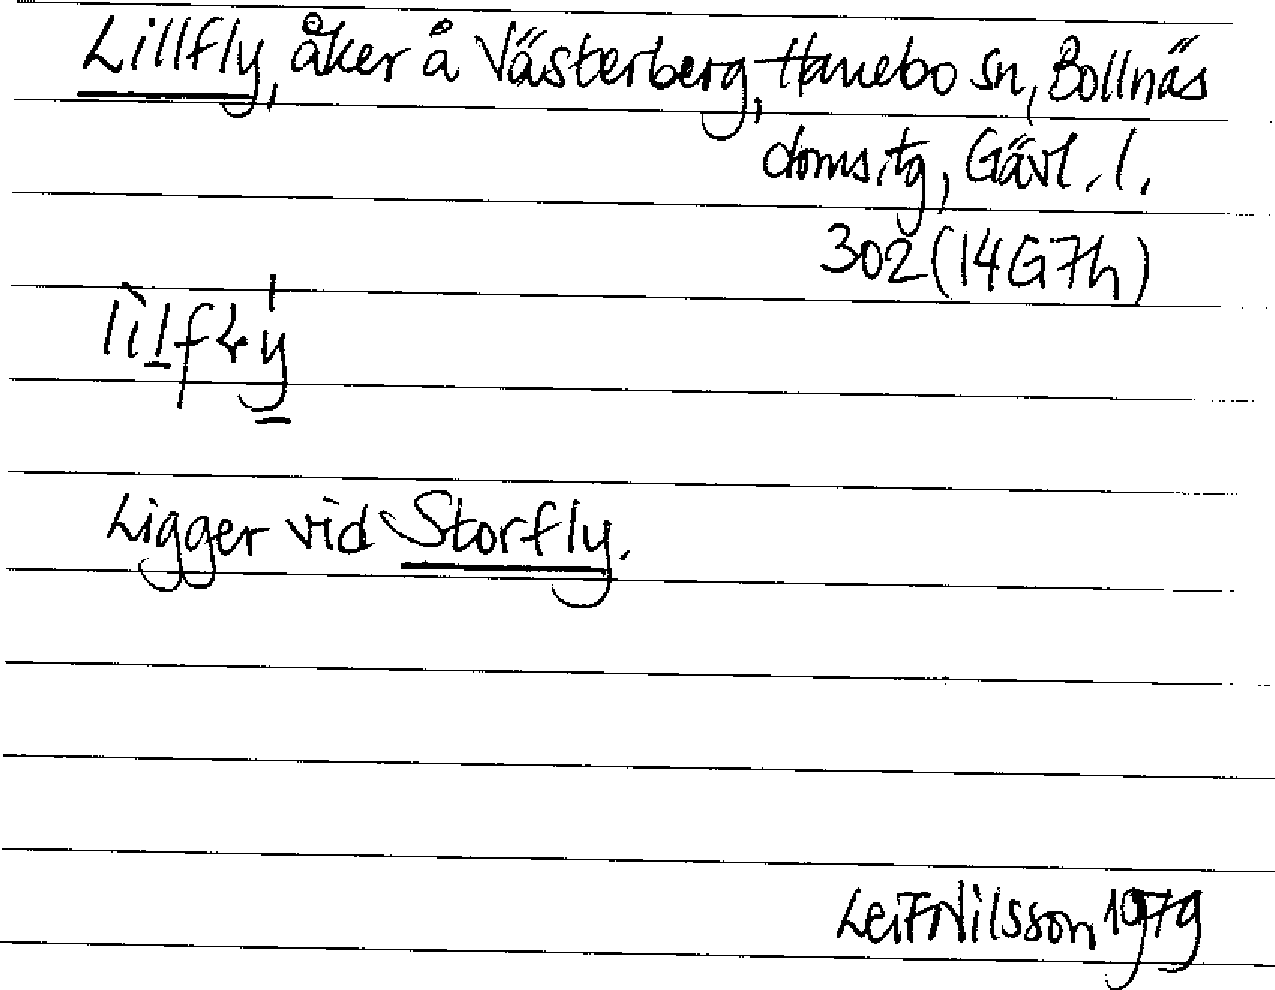 Lillfly, åker å Västerberg, Hanebo sn, Bollnäs
doms.tg, Gävl. l.
302 (14G7h)
Ligger vid Storfly.
Leif Nilsson 1979